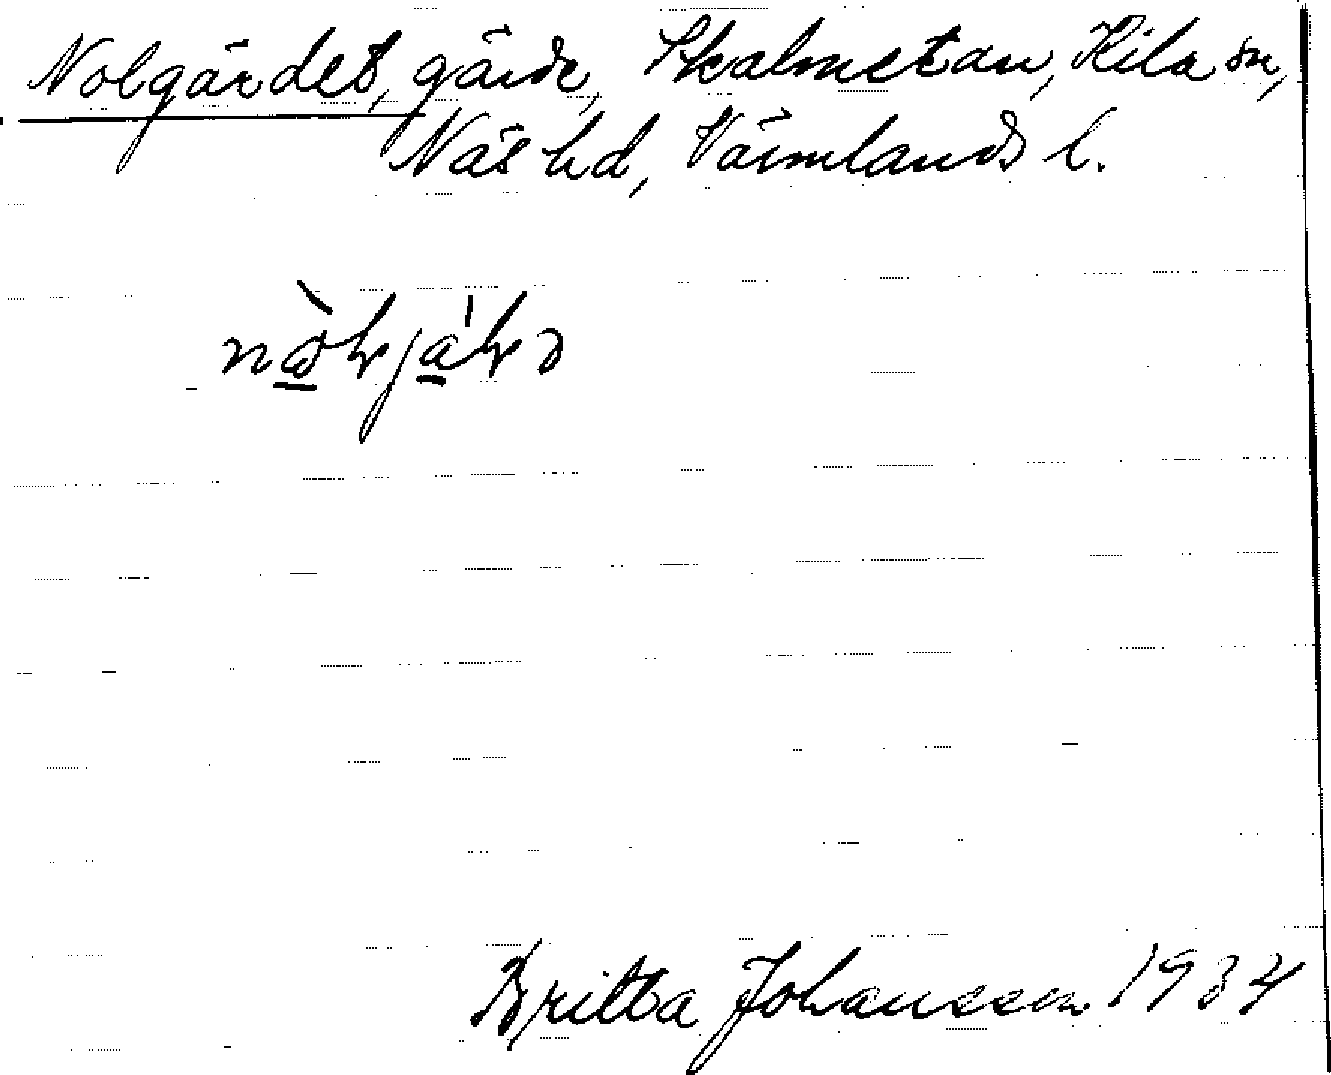 Nolgärdet, gärde, Skalmetan, Kila sn,
Näs hd, Värmlands l.
Britta Johansson 1934